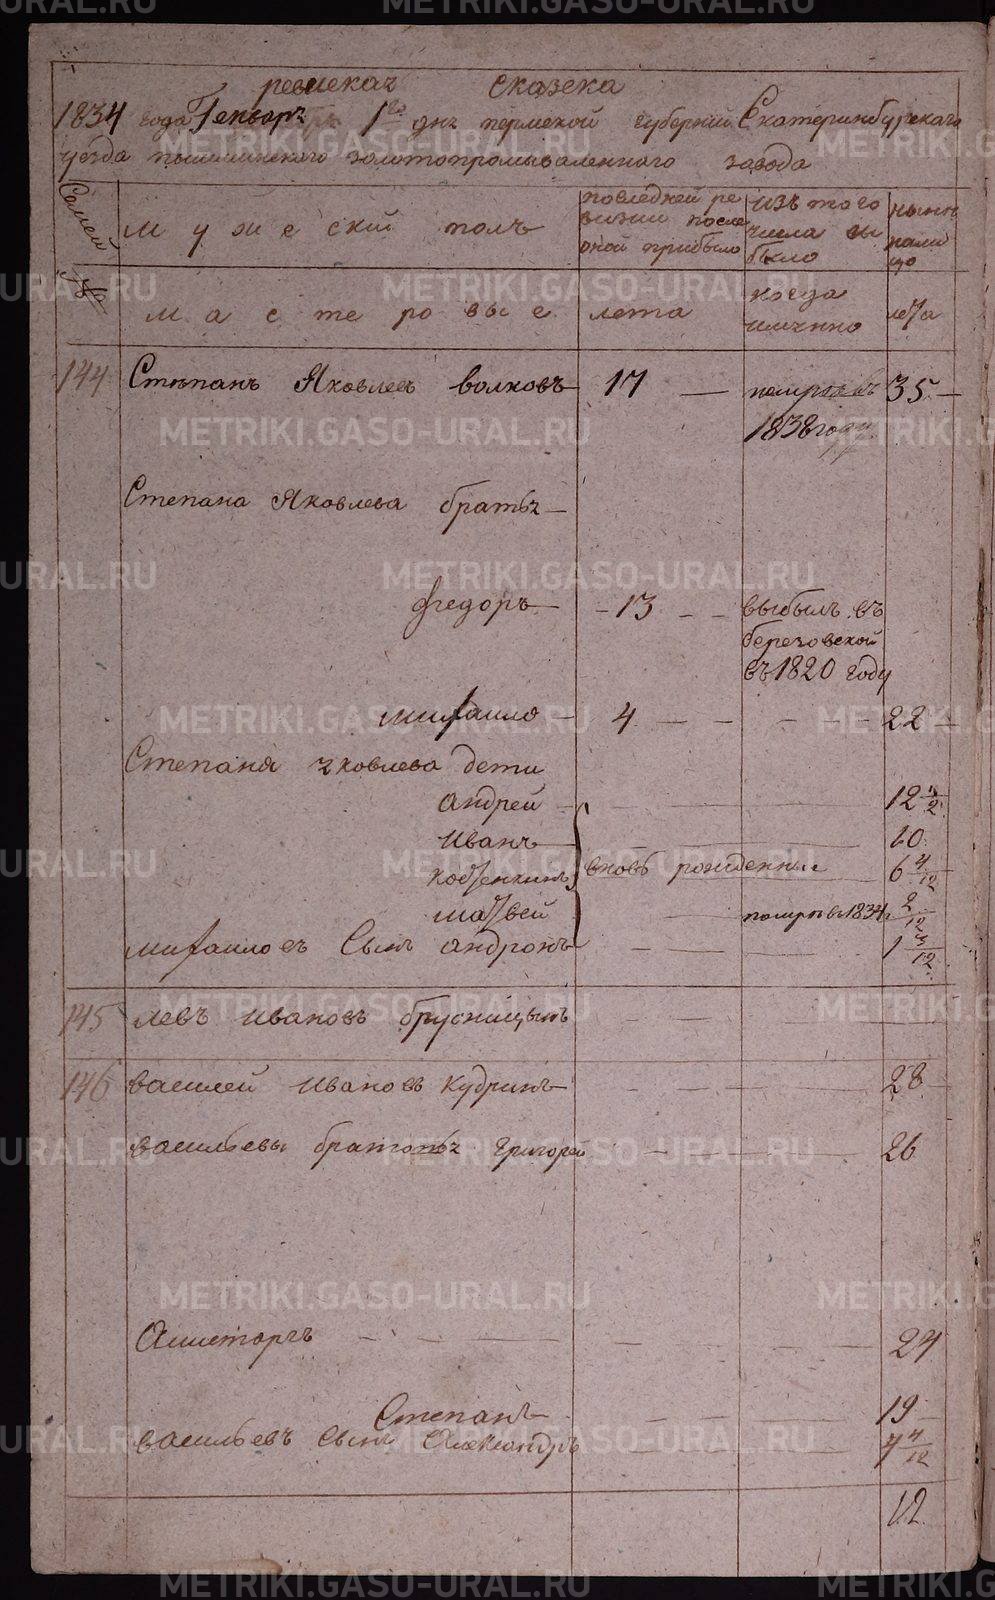 METRIKI.GASO-URAL.RU
ревискач сказска
1834 года Генваря 1го дня пермской губернии Екатеринбургскаго
уезда пышминскаго золотопромываленного завода
Семей №
мужеский полъ
последней ревизии после оной прибыло
изъ того числа выбыло
ныне на лицо
мастеровые
лета
когда имянно
лета
144 Стѣпанъ Яковлев волковъ 17 — помръ въ 35 —
1838 году
Степана Яковлева братья —
Фѣедоръ — 13 — выбылъ въ
березовской
въ 1820 году
михаило — 4 — 22 —
Степана яковлева дети
андрей 12
Иванъ 10
вновь рожденные 6 4/12
матвей помръ в 1834 2/12
михаилов Сынъ андронъ 1 3/12
145 левъ Ивановъ брусницынъ
146 василей Иванов кудринъ 28
васильевы братья григорей 26
24
Степанъ 19
васильевъ Сынъ Александръ 4/12
12